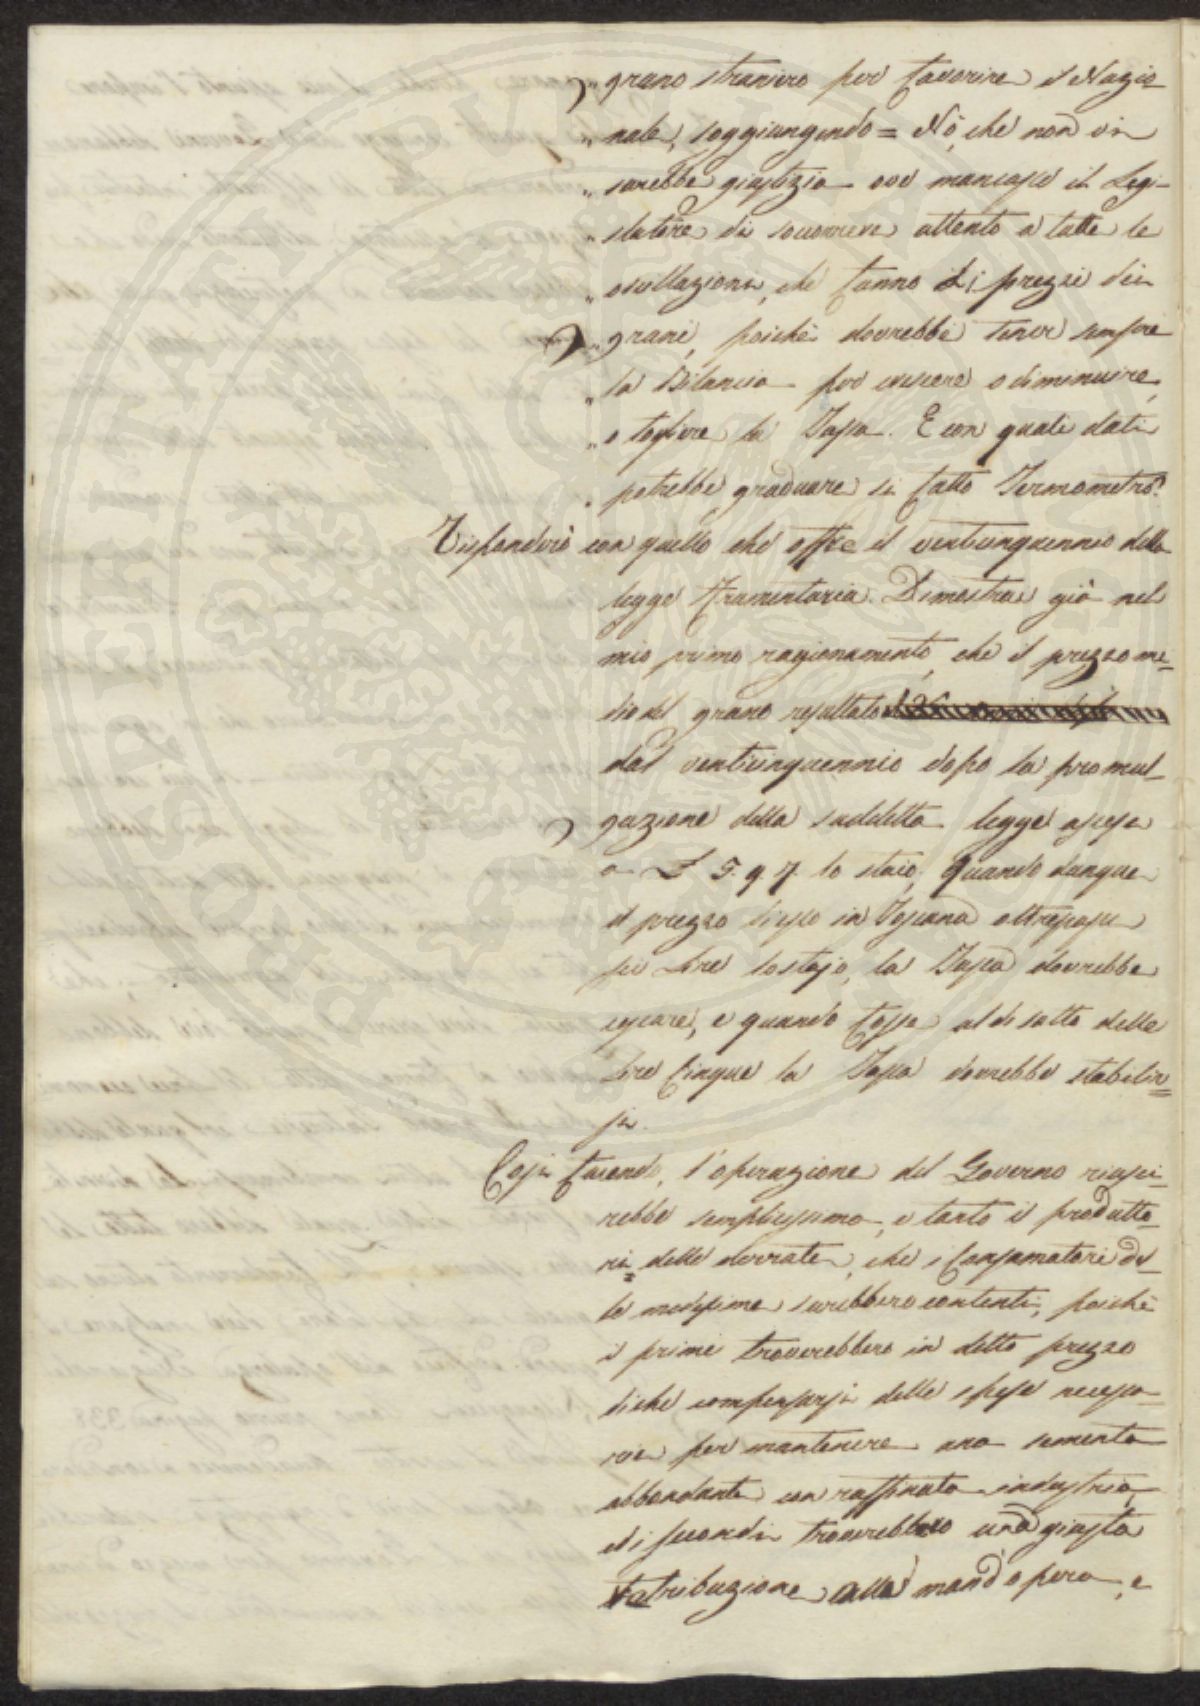 „ grano straniero per favorire il Nazio-
„ nale, soggiungendo = Nò, che non vi
„ sarebbe giustizia ove mancasse il Legi-
„ slatore di scorrere attento a tutte le
„ oscillazioni, che fanno i prezzi dei
„ grani, poichè dovrebbe tener sempre
„ la Bilancia per crescere o diminuire,
„ o togliere la Tassa. E con quali dati
„ potrebbe graduare sì fatto Termometro?
Risponderò con quello che offre il ventiunquennio della
legge frumentaria. Dimostrai già nel
mio primo ragionamento, che il prezzo me-
dio del grano resultato
dal ventiunquennio dopo la promul-
gazione della suddetta legge ascese
a £ 5. 9. 7. lo staio; Quando dunque
il prezzo disso in Toscana oltrepassi
sei Lire lo stajo, la Tassa dovrebbe
cessare, e quando fosse al di sotto delle
Lire Cinque la Tassa dovrebbe stabilir-
si.
Così facendo, l'operazione del Governo riusci-
rebbe semplicissima, e tanto i produtto-
ri delle derrate, che i Consumatori del-
le medesime sarebbero contenti, poichè
i primi troverebbero in detto prezzo
di che compensarsi delle spese necessa-
rie per mantenere una sementa
abbondante con raffinata industria,
ed i secondi troverebbero una giusta
retribuzione alla mano d'opera, e